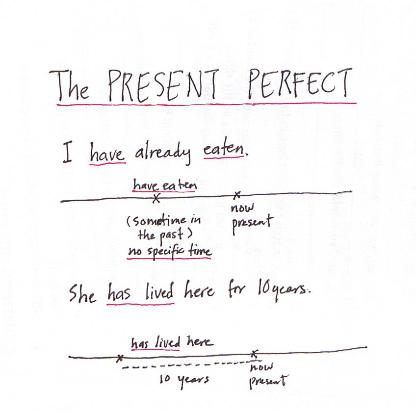 The PRESENT PERFECT
I have already eaten.
have eaten
now
present
(sometime in
the past)
no specific time
She has lived here for 10 years.
has lived here
10 years
now
present